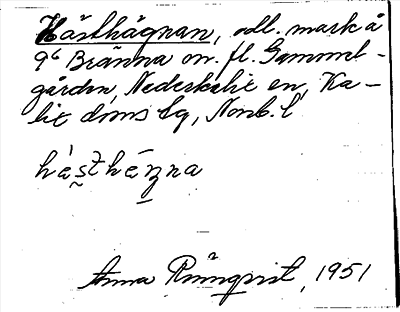 Hästhägnan, odl. mark å
9⁶ Bränna om. fl. Gammel-
gården, Nederkalix en, Ka-
lix doms lg, Norrb. l
hästhägna
Anna Rönnqvist, 1951